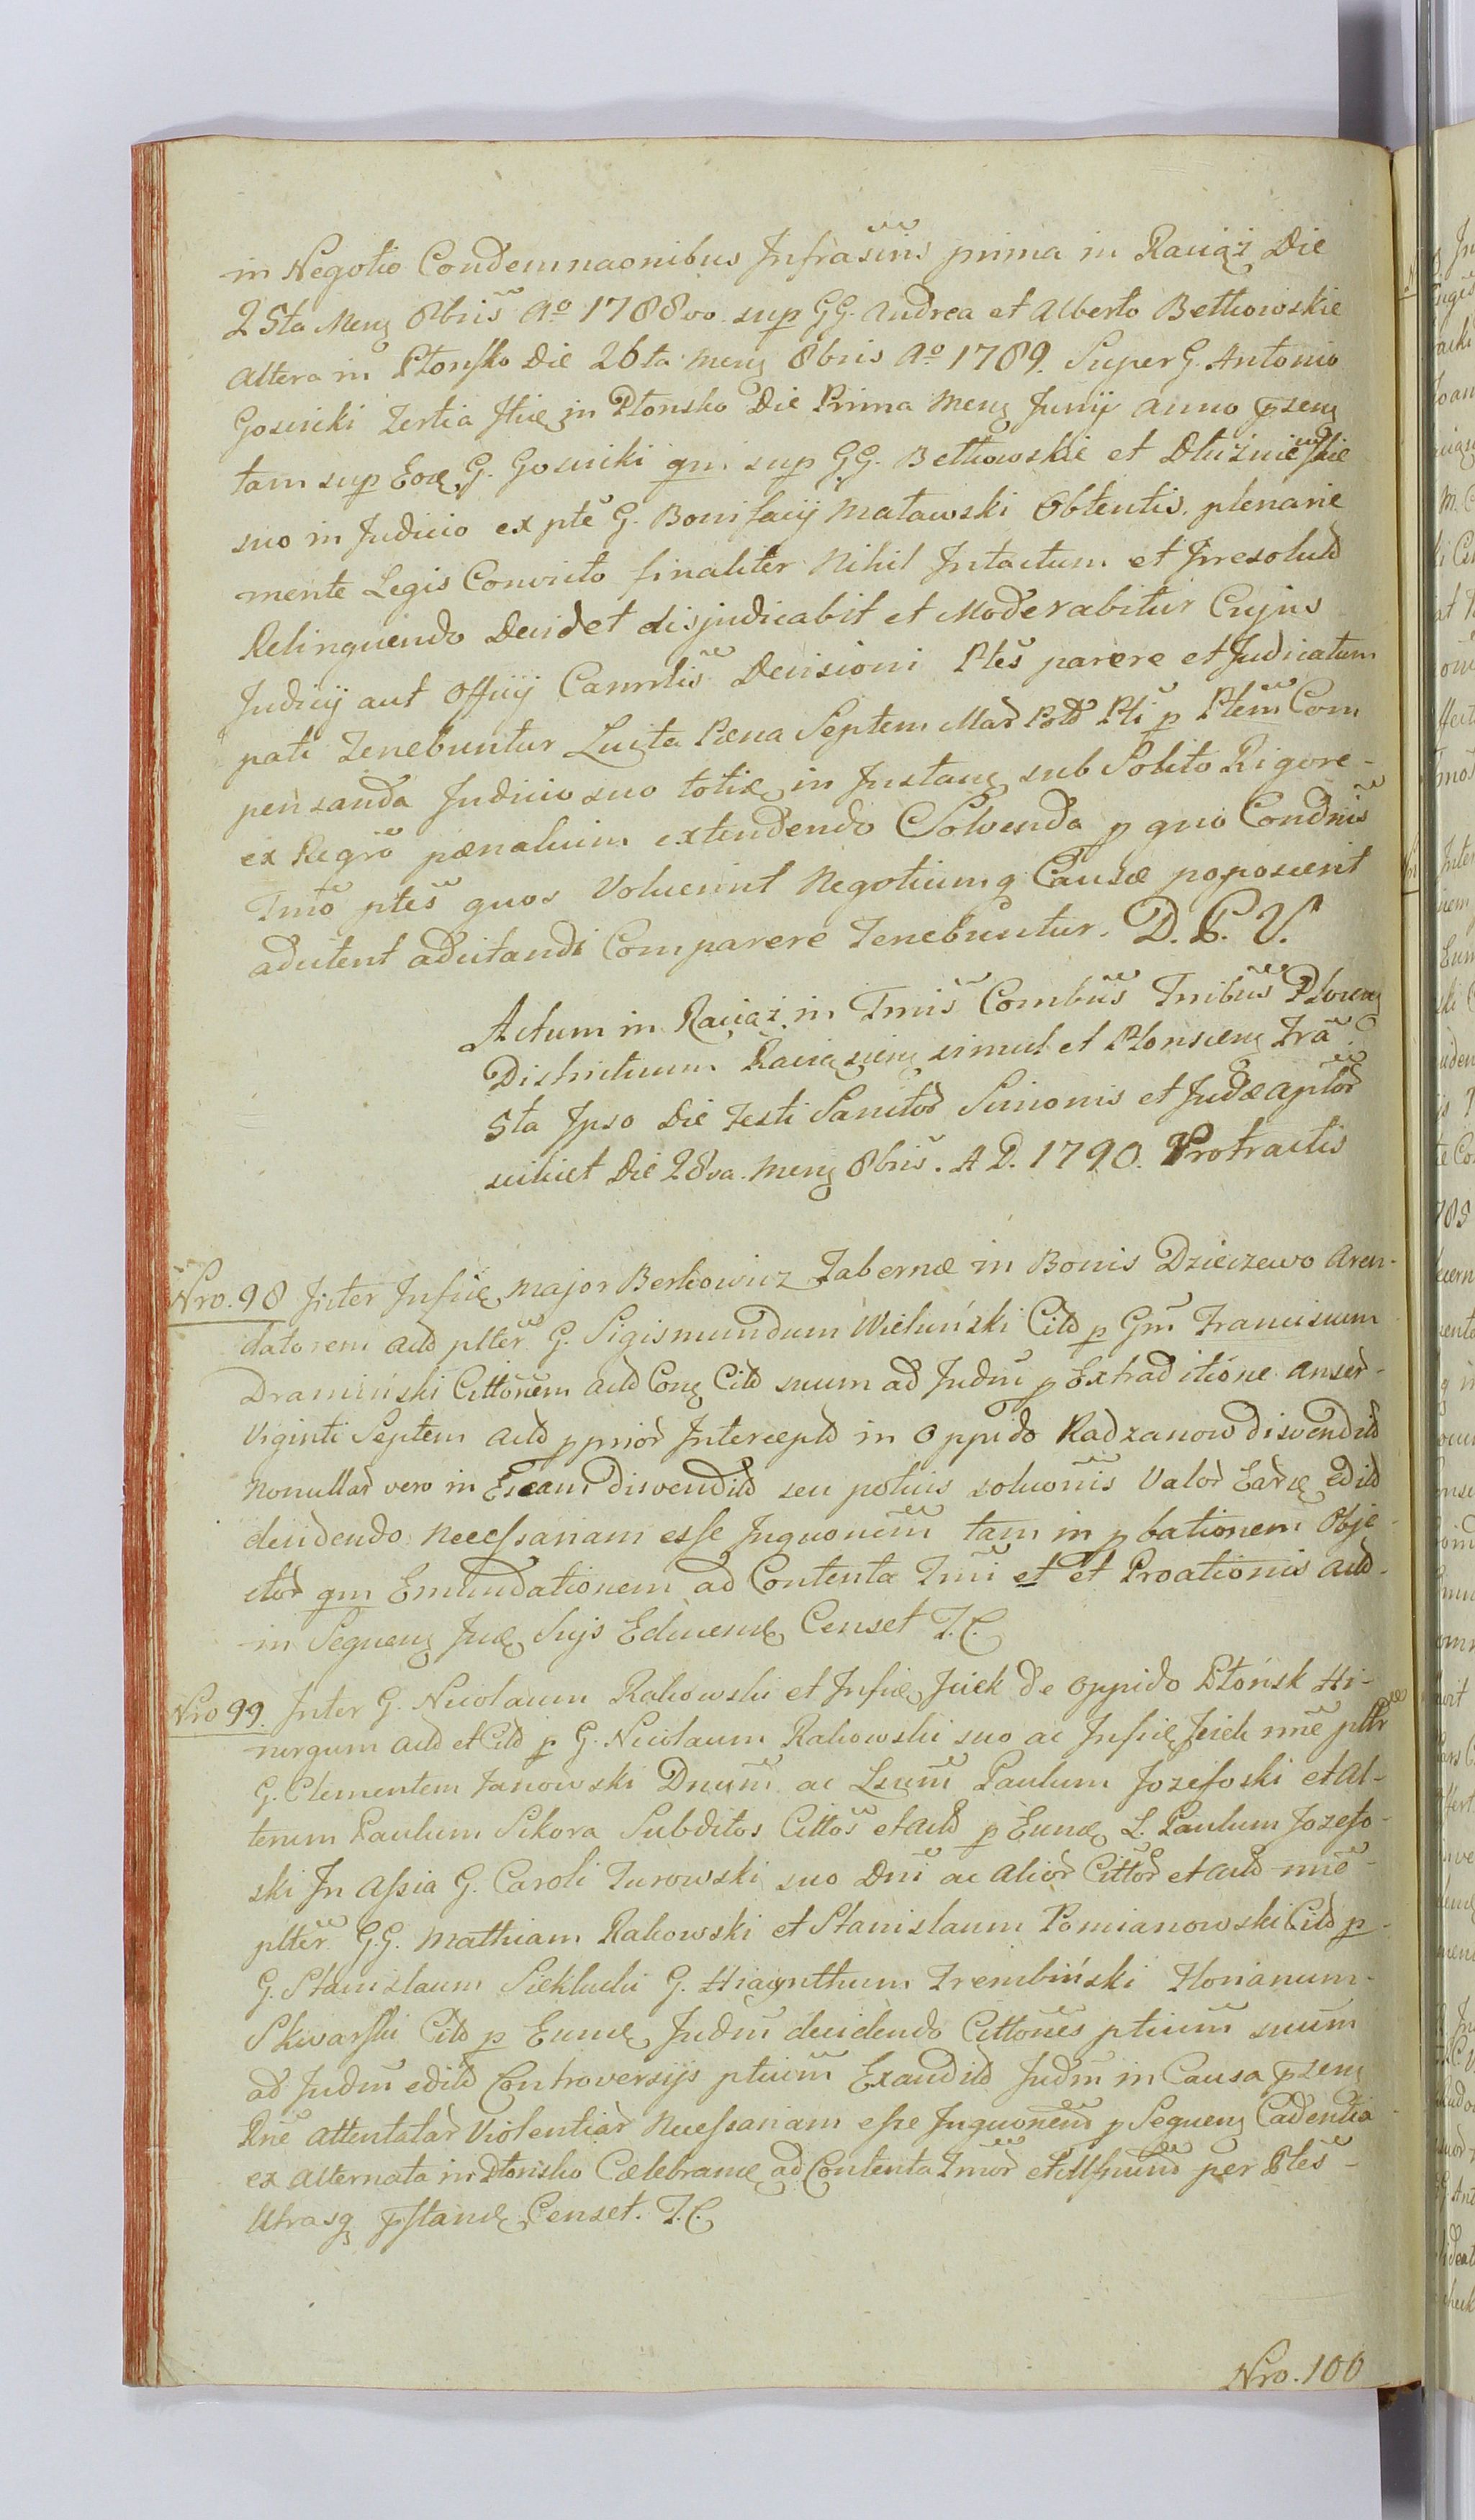 in Negotio Condemnaonibus Infrascris prima in Raciąż Die
25ta Mens 8bris Ao 1788vo sup GG. Andrea et Alberto Betkowskie
Altera in Płonsko Die 26ta mens 8bris Ao 1789. Super G. Antonio
Gosecicki Tertia Itie in Płonsko Die Prima Mens Junij anno psens
tam sup Eoe G. Gosecicki qm sup GG. Betkowskie et Dłużniewskie
suo in Judicio ex pte G. Bonifacij Matawski Obtentis. plenarie
mente Legis Convicto finaliter Nihil Intactum et Irresolut
Relinquendo Decidet disjudicabit et Moderabitur Cujus
Judicij aut Officij Camrlis Decisioni Ptes parere et Judicatum
pati Tenebuntur Lucta Pæna Septem Mar Pold Pti p Ptem Com
pensanda Judicio suo toties in Instans sub Solito Rigore
ex Regro pænalium extendendo Solvenda p quo Condnis
Tmo ptes quos Voluerint Negotiumq Causæ poposcerit
adcitent adcitandi Comparere Tenebuntur. D. P. V.
Actum in Raciąż in Tmis Combus Tribus Plocens
Districtuum Raciąziens simul et Plonscens Fra
5ta Ipso Die Festi Sanctor Simonis et Judæ Aplor
scilicet Die 28va. Mens 8bris. A D. 1790. Protractis
Nro. 98 Inter Infie Major Berkowicz Tabernæ in Bonis Dzieczewo Aren-
datorem Actd plter G. Sigismundum Wieluński Citd p Gm Franciscum
Dramiński Cittonem Actd Cons Citd suum ad Judm p Extraditione Anser
Viginti Septem Actd pprior Intercept in Oppido Radzanow disvendit
Nonullar vero in Escam disvendit seu potius soluonis Valor Earie edit
decidendo necessariam esse Inquonem tam in pbationem Obje
ctor qm Emundationem ad Contenta Tmi et et Proationis Actd
in Sequens Jue Sujs Educene Censet T. C.
Nro 99. Inter G. Nicolaum Rakowski et Infie Jcek de Oppido Płońsk Hi-
rurgum Actd et Citd p G. Nicolaum Rakowski suo ac Infie Jcek nme plter
G. Clementem Janowski Dnum ac Lsum Paulum Jozefoski et Al-
terum Paulum Sikora Subditos Cittos et Actd p Eune L. Paulum Jozefo-
ski In Assia G. Caroli Turowski suo Dni ac Alior Cittor et Actd nme
plter GG. Mathiam Rakowski et Stanislaum Pomianowski Citd p
G. Stanislaum Siekłucki G. Hiacynthum Trembiński Florianum
Skwarski Citd p Eune Judm decidendo Cittones ptium suum
ad Judm edit Controversijs ptium Exaudit Judm in Causa psens
Rne Attentatar Violentiar Necessariam esse Inquonem p Sequens Cadentia
ex Alternata in Płonsko Celebrane ad Contenta Tmor per Ptes
Utrasq pstane Censet. T. C.
Nro. 100